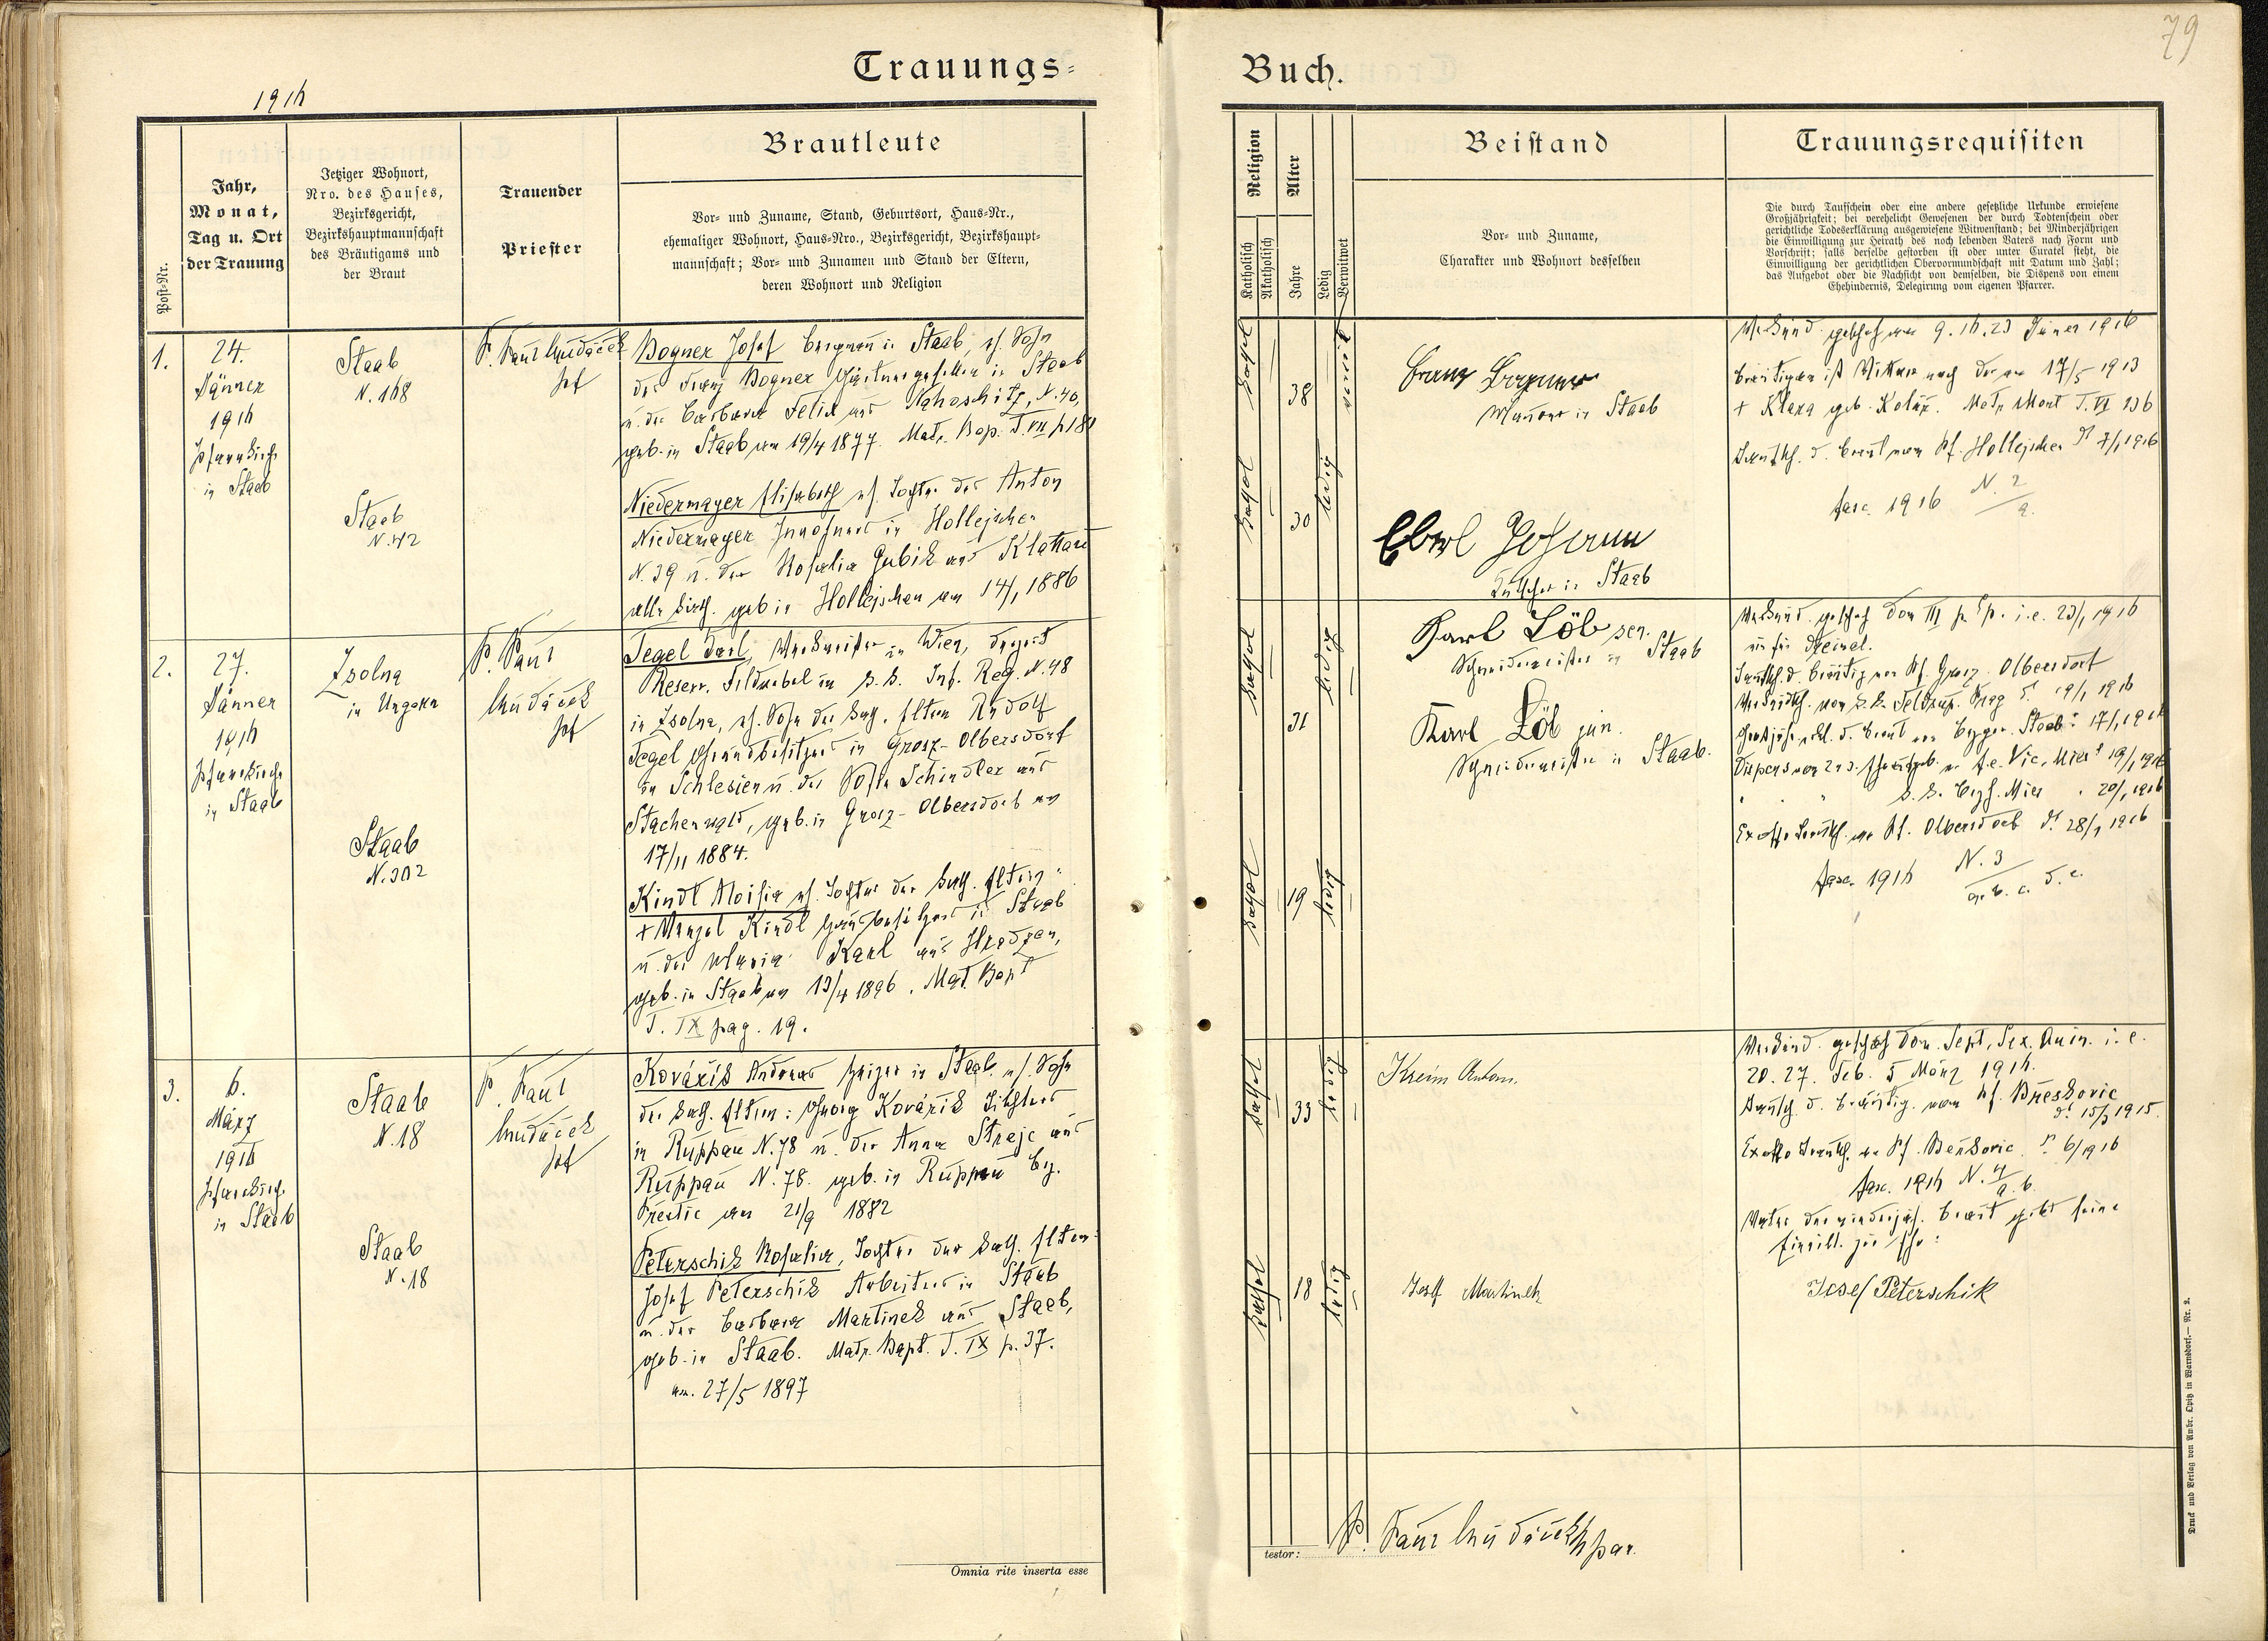 79
Trauungs-
Buch.
1916
Post-Nr.
Jahr,
Monat,
Tag u. Ort
der Trauung
Jetziger Wohnort,
Nro. des Hauses,
Bezirksgericht,
Bezirkshauptmannschaft
des Bräutigams und
der Braut
Trauender
Priester
Brautleute
Vor- und Zuname, Stand, Geburtsort, Haus-Nr.,
ehemaliger Wohnort, Haus-Nro., Bezirksgericht, Bezirkshaupt-
mannschaft; Vor- und Zunamen und Stand der Eltern,
deren Wohnort und Religion
Religion
Katholisch
Akatholisch
Alter
Jahre
Ledig
Verwitwet
Beistand
Vor- und Zuname,
Charakter und Wohnort desselben
Trauungsrequisiten
Die durch Taufschein oder eine andere gesetzliche Urkunde erwiesene
Großjährigkeit; bei verehelicht Gewesenen der durch Todtenschein oder
gerichtliche Todeserklärung ausgewiesene Witwenstand; bei Minderjährigen
die Einwilligung zur Heirath des noch lebenden Vaters nach Form und
Vorschrift; falls derselbe gestorben ist oder unter Curatel steht, die
Einwilligung der gerichtlichen Obervormundschaft mit Datum und Zahl;
das Aufgebot oder die Nachsicht von demselben, die Dispens von einem
Ehehindernis, Delegirung vom eigenen Pfarrer.
1.
24.
Jänner
1916
Pfarrkirche
in Staab
Staab
N. 168
Staab
N. 42
P. Paul
Bogner Josef Bergmann in Staab, eh. Sohn
des Franz Bogner in Staab
u. der Barbara Felix aus N. 40,
geb. in Staab am 19/4 1877. Matr. Bap. T. VII p 181
Niedermayer Elisabeth eh. Tochter des Anton
Niedermayer Inwohners in Holleischen
N. 39 u. der Rosalia Gubik aus Klattau
alle kath. geb in Holleischen am 14/1 1886
kathol
38
verwit
kathol
30
ledig
Franz
in Staab
Eberl Johann
Kutscher in Staab
Verkünd. geschah am 9. 16. 23 Jänner 1916
Bräutigam ist Witwer nach der am 17/5 1913
+ Klara geb. Kolář. Matr Mort T. VI 136
Taufsch. d. Braut vom Pf. Holleischen 7/1 1916
fasc. 1916 N. 2
a.
2.
27.
Jänner
1916
Pfarrkirche
in Staab
Zsolna
in Ungarn
Staab
N. 302
P. Paul
Tegel Karl, in Wien, derzeit
Reserv. Feldwebel im k. k. Inf. Reg. N. 48
in Zsolna, eh. Sohn der kath. Eltern Rudolf
Tegel Grundbesitzers in Grosz-Olbersdorf
in Schlesien u. der Sofie Schindler aus
Stachenwald, geb. in Grosz-Olbersdorf am
17/11 1884.
Kindl Aloisia eh. Tochter der kath. Eltern:
+ Wenzel Kindl Hausbesitzers in Staab
u. der Maria Karl aus Hradzen,
geb. in Staab am 13/4 1896. Mat. Bapt
T. IX pag. 19.
kathol
31
ledig
kathol
19
ledig
Karl Löb sen.
Schneidermeister in Staab
Karl Löb jun.
Schneidermeister in Staab.
Verkünd. geschah Dom III p. Ep. i. e. 23/1 1916
ein für dreimal.
Taufsch. d. Bräutig von Pf. Grosz-Olbersdorf
fasc. 1916 N. 3
a. b. c. d. e.
3.
6.
März
1916
Pfarrkirche
in Staab
Staab
N. 18
Staab
N. 18
P. Paul
Kovářík Andreas Heizer in Staab eh. Sohn
der kath. Eltern: Georg Kovářík
in Ruppau N. 78 u. der Anna Strejc aus
Ruppau N. 78. geb. in Ruppau Bz.
Přestic am 21/9 1882
Peterschik Rosalia, Tochter der kath. Eltern:
Josef Peterschik Arbeiters in Staab
u. der Barbara Martinek aus Staab,
geb. in Staab. Matr. Bapt. T. IX p. 37.
am. 27/5 1897
kathol
33
ledig
kathol
18
ledig
Kreim Anton.
Josef Martinek
Verkünd. geschah Dom. Sept, Sex. Quin. i. e.
20. 27. Feb. 5 März 1916.
Taufsch. d. Bräutig. vom Pf.
15/3 1915.
fasc. 1916 N. 4
a. b.
Vater der minderjähr. Braut gibt seine
Einwill. zur Ehe:
Josef Peterschik
Omnia rite inserta esse
testor:
P. Paul
Druck und Verlag von Ambr. Opitz in Warnsdorf.— Nr. 2.